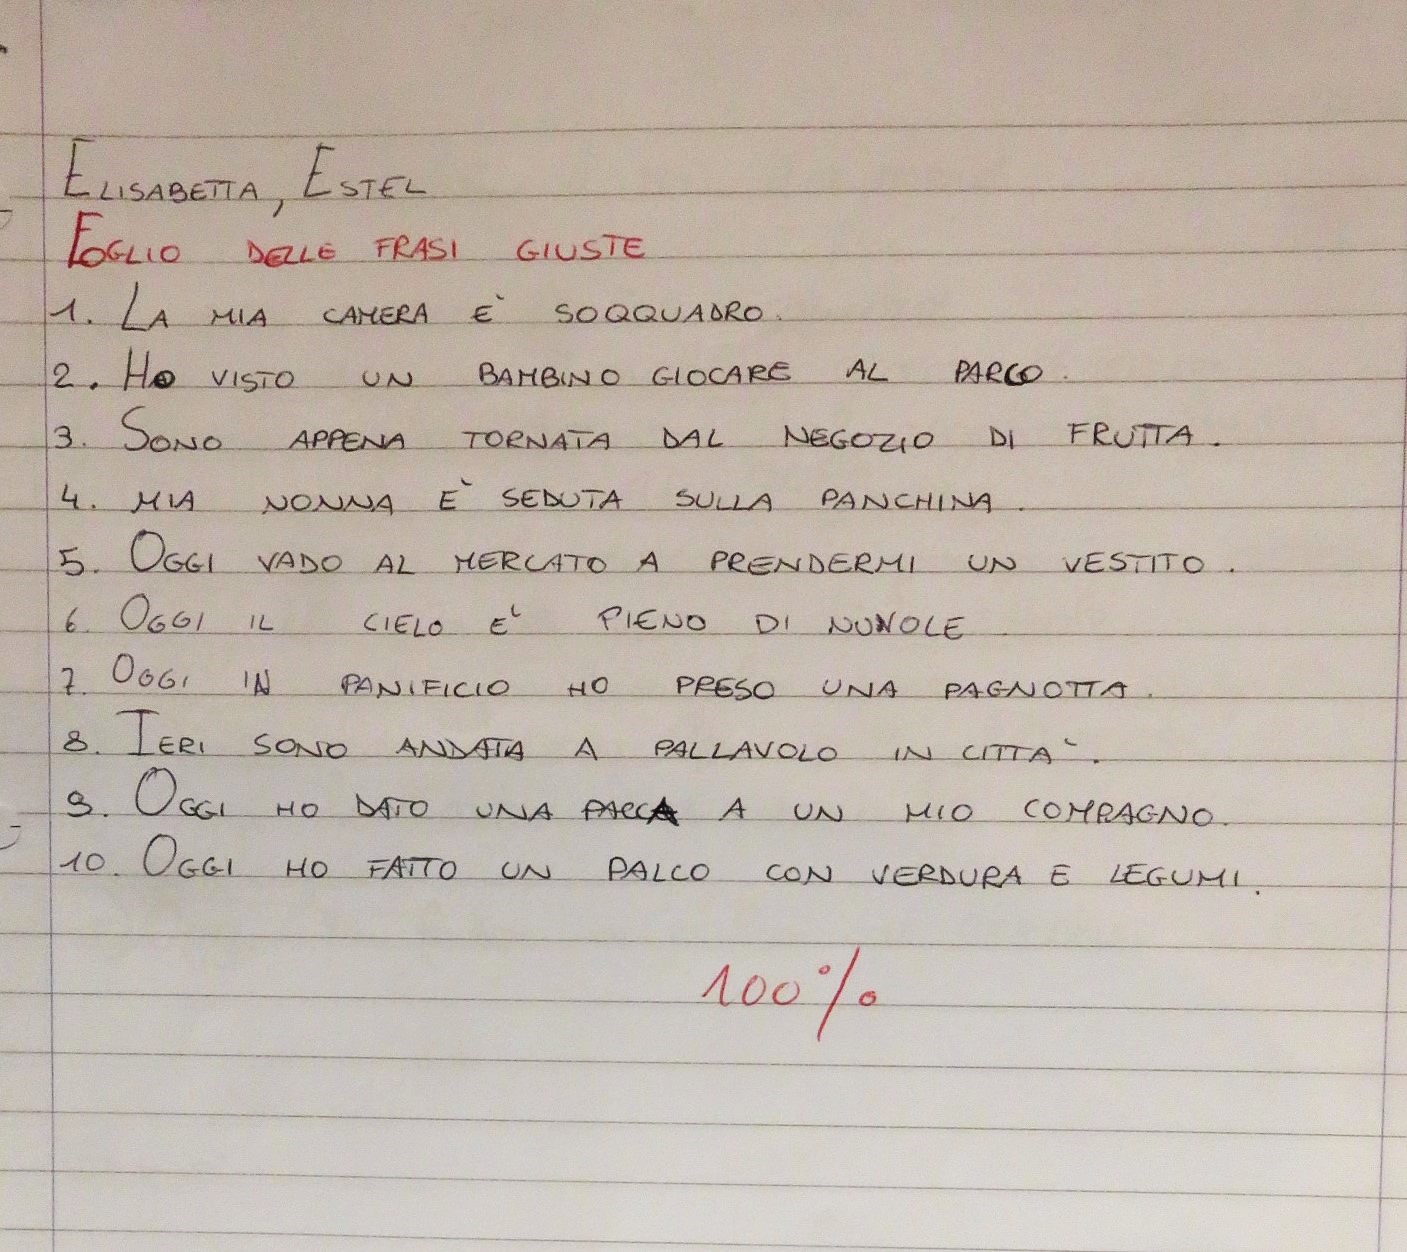 Elisabetta, Estel
Foglio delle frasi giuste
1. La mia camera è soqquadro.
2. Ho visto un bambino giocare al parco.
3. Sono appena tornata dal negozio di frutta.
4. mia nonna è seduta sulla panchina.
5. Oggi vado al mercato a prendermi un vestito.
6. Oggi il cielo è pieno di nuvole
7. Oggi in panificio ho preso una pagnotta.
8. Ieri sono andata a pallavolo in città.
9. Oggi ho dato una pacca a un mio compagno.
10. Oggi ho fatto un palco con verdura e legumi.
100%